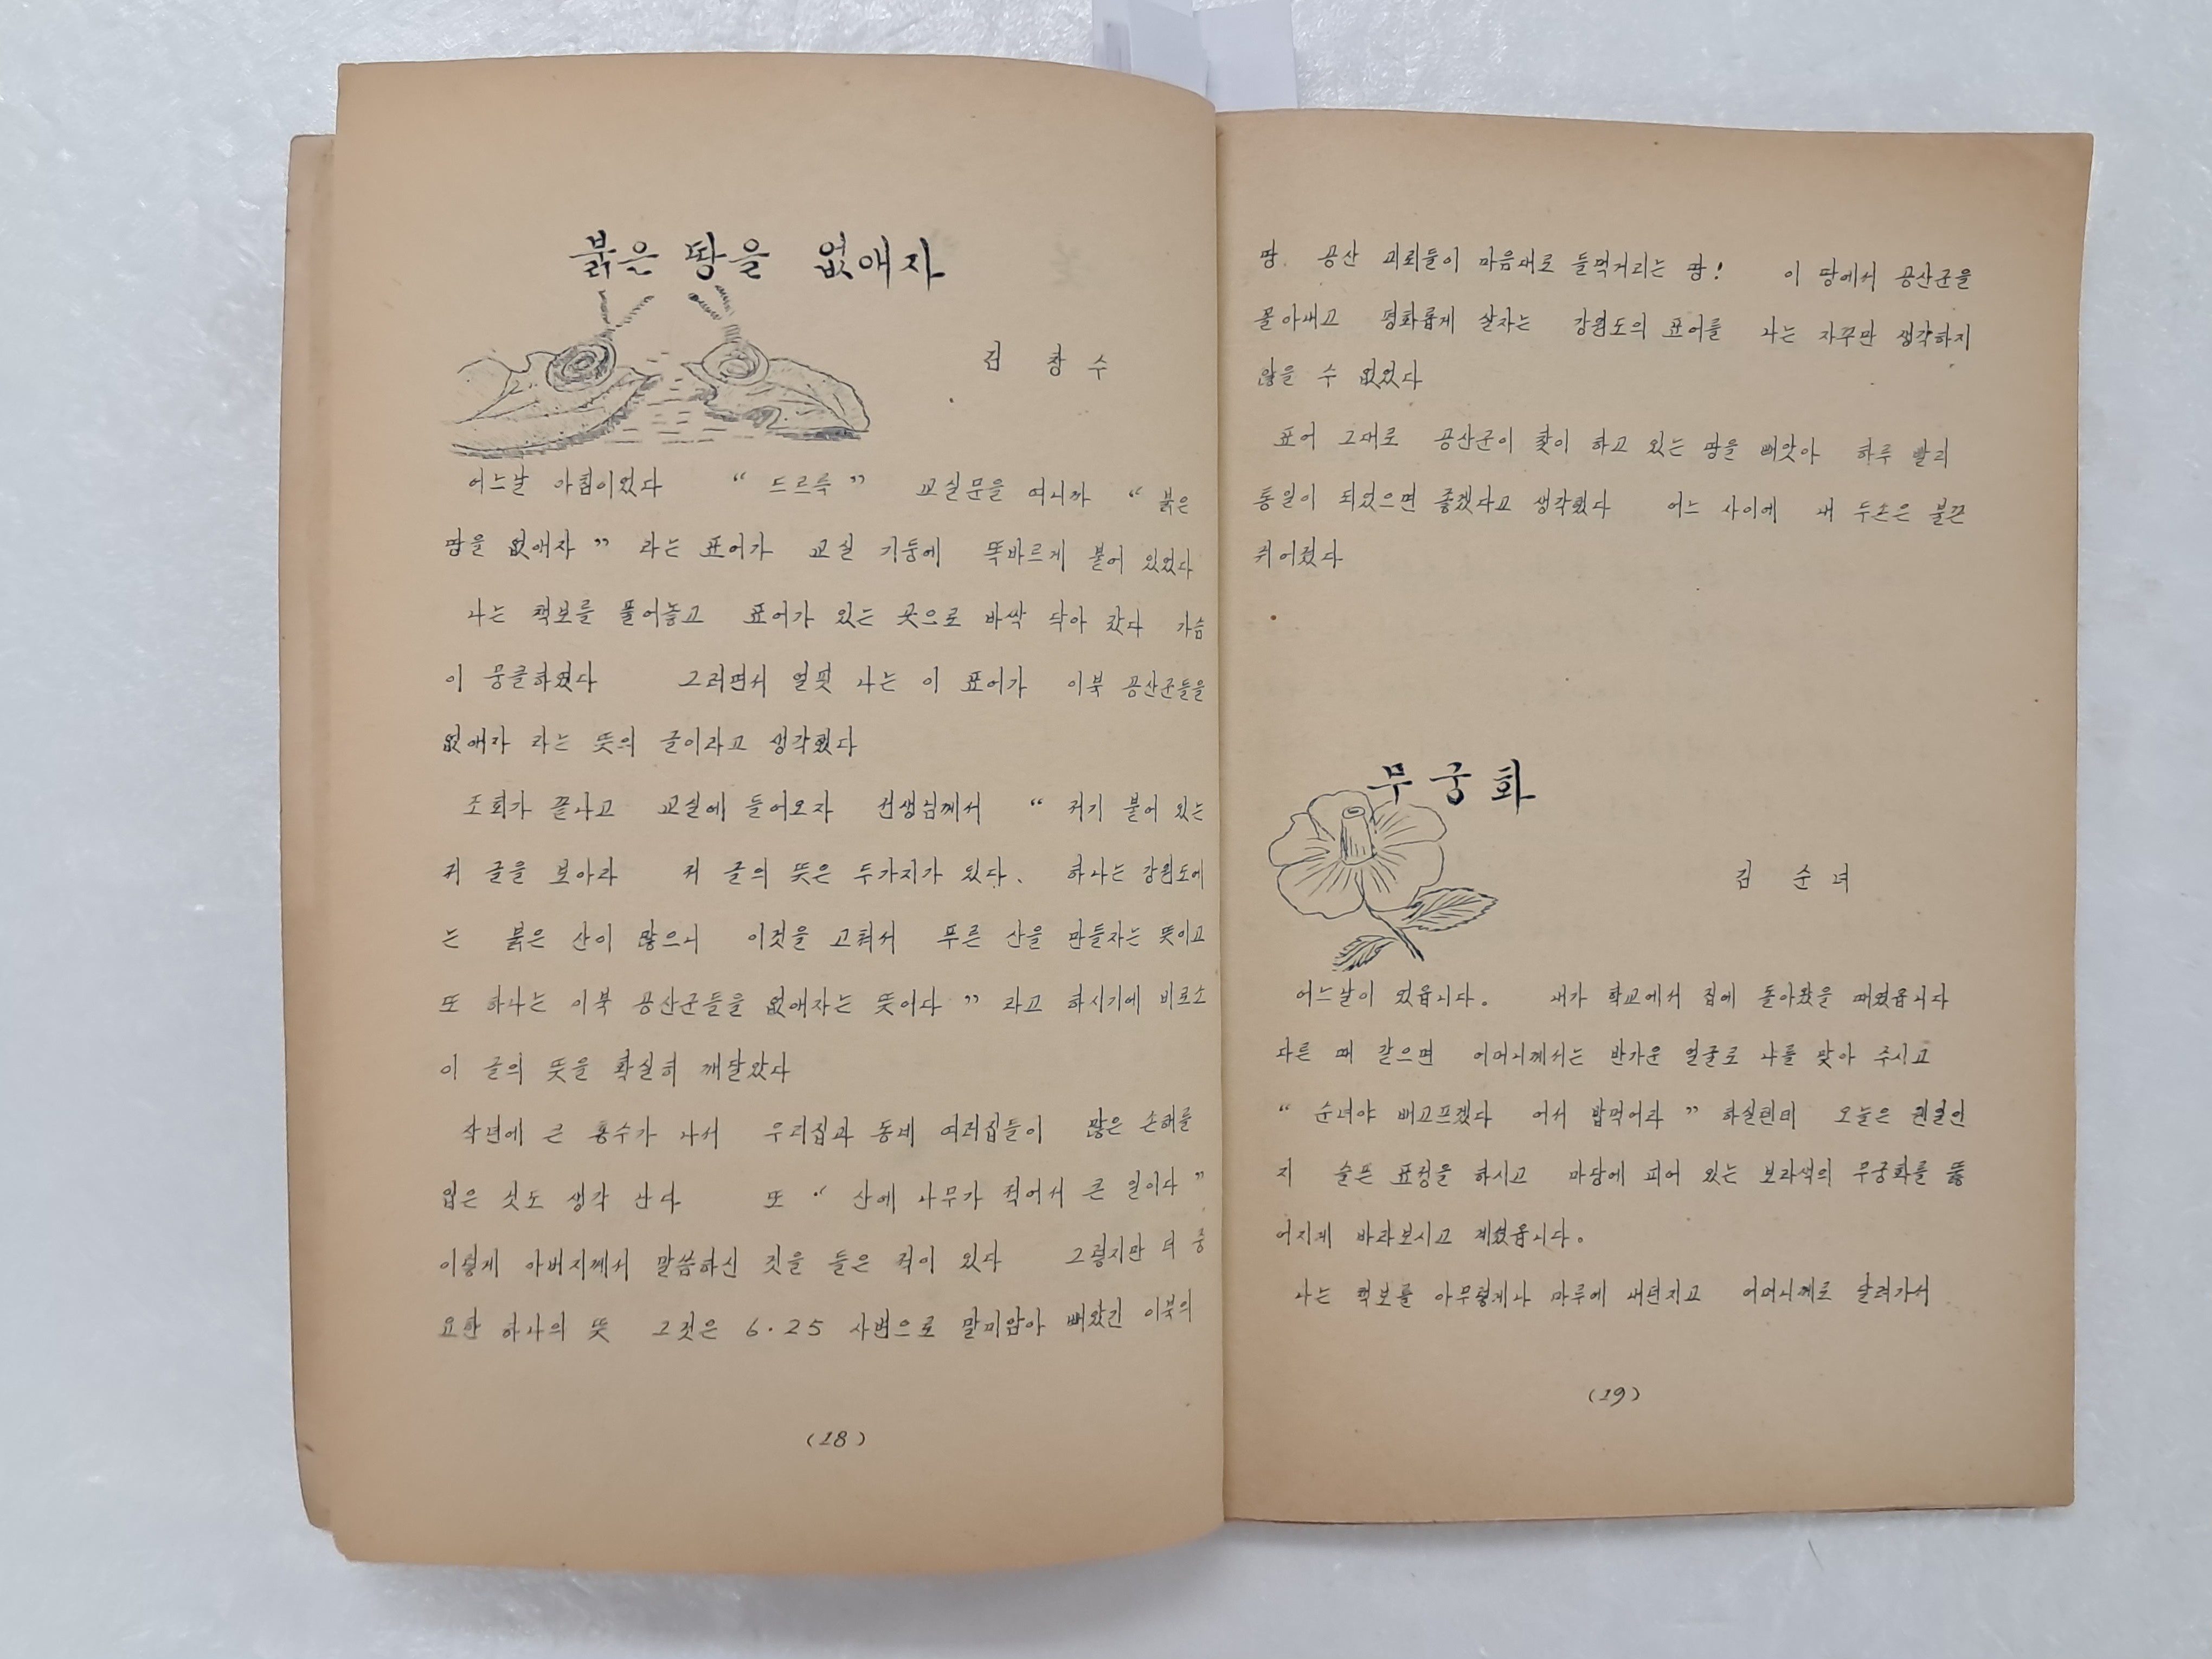 붉은 땅을 없애자
김 창 수
어느날 아침이었다 “ 드르륵 ” 교실문을 여니까 “ 붉은
땅을 없애자 ” 라는 표어가 교실 기둥에 똑바르게 붙어 있었다
나는 책보를 풀어놓고 표어가 있는 곳으로 바싹 닥아 갔다 가슴
이 뭉클하였다 그러면서 얼핏 나는 이 표어가 이북 공산군들을
없애자 라는 뜻의 글이라고 생각했다
조회가 끝나고 교실에 들어오자 선생님께서 “ 저기 붙어 있는
저 글을 보아라 저 글의 뜻은 두가지가 있다. 하나는 강원도에
는 붉은 산이 많으니 이것을 고쳐서 푸른 산을 만들자는 뜻이고
또 하나는 이북 공산군들을 없애자는 뜻이다 ” 라고 하시기에 비로소
이 글의 뜻을 확실히 깨달았다
작년에 큰 홍수가 나서 우리집과 동네 여러집들이 많은 손해를
입은 것도 생각 난다 또 “ 산에 나무가 적어서 큰 일이다 ”
이렇게 아버지께서 말씀하신 것을 들은 적이 있다 그렇지만 더 중
요한 하나의 뜻 그것은 6.25 사변으로 말미암아 빼았긴 이북의
(18)
땅. 공산 괴뢰들이 마음대로 들먹거리는 땅! 이 땅에서 공산군을
몰아내고 평화롭게 살자는 강원도의 표어를 나는 자꾸만 생각하지
않을 수 없었다
표어 그대로 공산군이 찾이 하고 있는 땅을 빼앗아 하루 빨리
통일이 되었으면 좋겠다고 생각했다 어느 사이에 내 두손은 불끈
쥐어졌다
무궁화
김 순 녀
어느날이 있읍니다. 내가 학교에서 집에 돌아왔을 때였읍니다
다른 때 같으면 어머니께서는 반가운 얼굴로 나를 맞아 주시고
“ 순녀야 배고프겠다 어서 밥먹어라 ” 하실텐데 오늘은 웬일인
지 슬픈 표정을 하시고 마당에 피어 있는 보라색의 무궁화를 뚫
어지게 바라보시고 계셨읍니다.
나는 책보를 아무렇게나 마루에 내던지고 어머니께로 달려가서
(19)